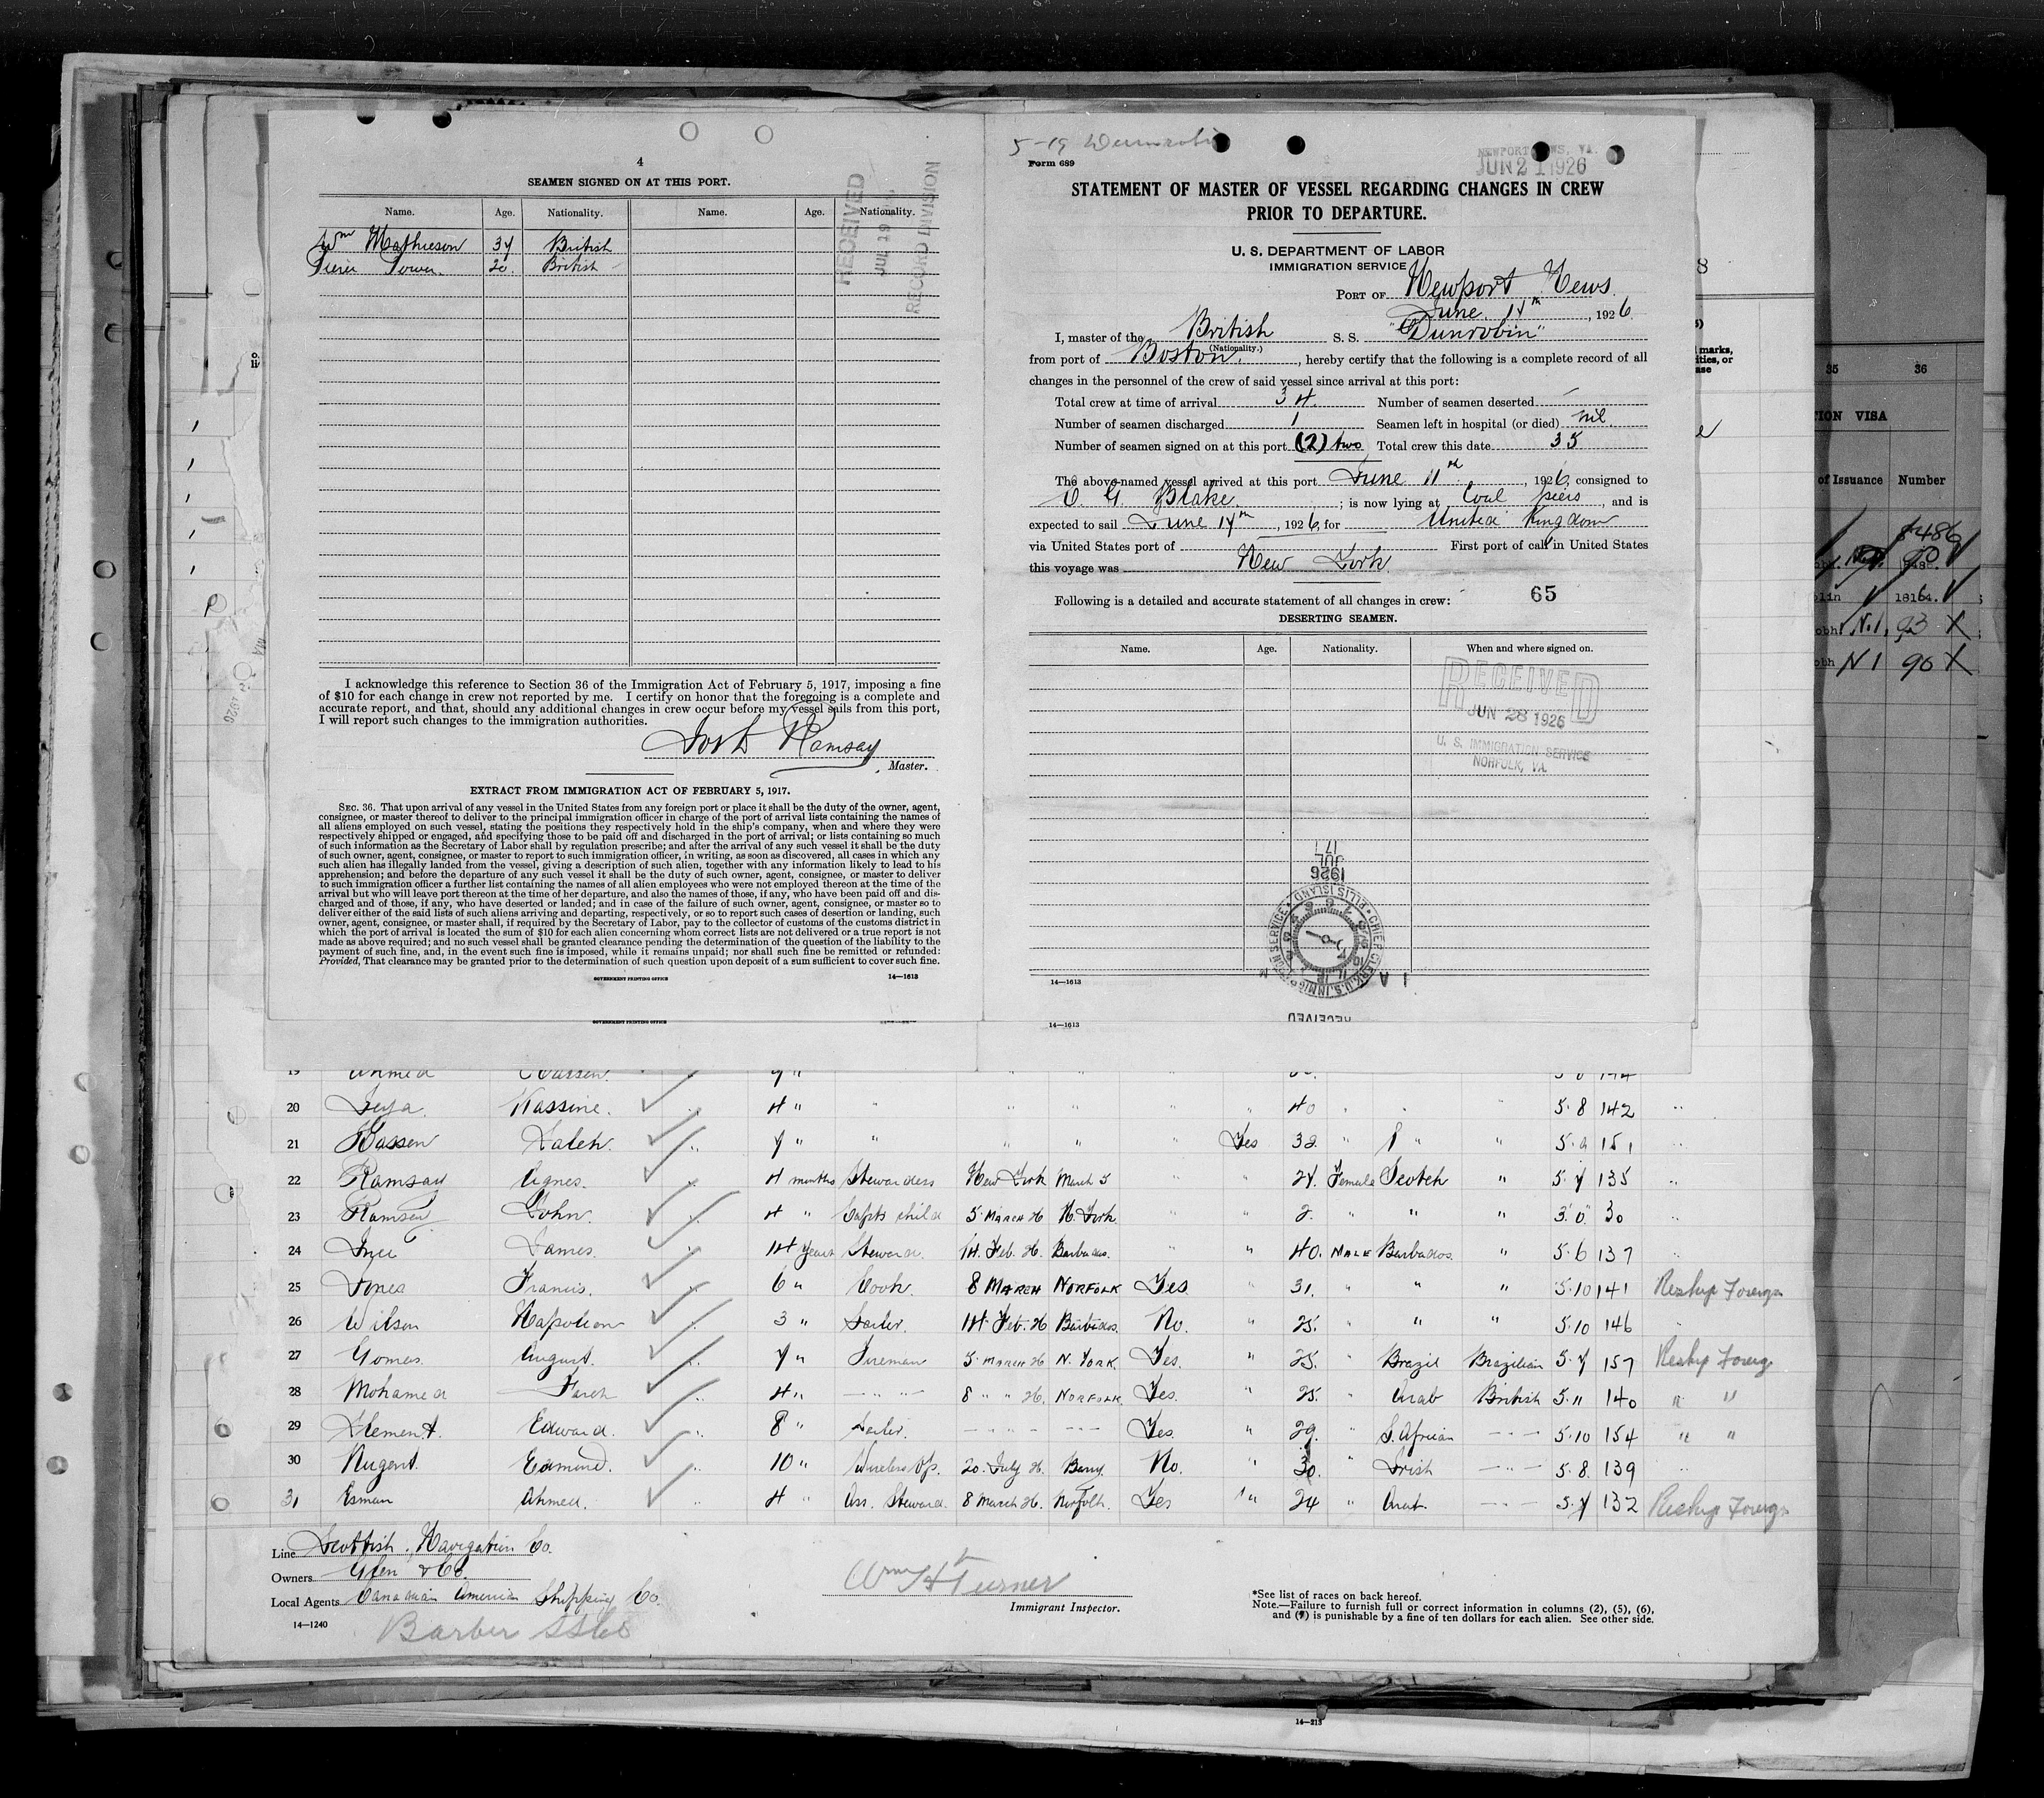 4
SEAMEN SIGNED ON AT THIS PORT.
Name. Age. Nationality. Name. Age. Nationality.
Wm Mathieson 34 British
Power. 20. British
RECEIVED
JUL 19
RECORD DIVISION
I acknowledge this reference to Section 36 of the Immigration Act of February 5, 1917, imposing a fine
of $10 for each change in crew not reported by me. I certify on honor that the foregoing is a complete and
accurate report, and that, should any additional changes in crew occur before my vessel sails from this port,
I will report such changes to the immigration authorities.
Ramsay
Master.
EXTRACT FROM IMMIGRATION ACT OF FEBRUARY 5, 1917.
SEC. 36. That upon arrival of any vessel in the United States from any foreign port or place it shall be the duty of the owner, agent,
consignee, or master thereof to deliver to the principal immigration officer in charge of the port of arrival lists containing the names of
all aliens employed on such vessel, stating the positions they respectively hold in the ship's company, when and where they were
respectively shipped or engaged, and specifying those to be paid off and discharged in the port of arrival; or lists containing so much
of such information as the Secretary of Labor shall by regulation prescribe; and after the arrival of any such vessel it shall be the duty
of such owner, agent, consignee, or master to report to such immigration officer, in writing, as soon as discovered, all cases in which any
such alien has illegally landed from the vessel, giving a description of such alien, together with any information likely to lead to his
apprehension; and before the departure of any such vessel it shall be the duty of such owner, agent, consignee, or master to deliver
to such immigration officer a further list containing the names of all alien employees who were not employed thereon at the time of the
arrival but who will leave port thereon at the time of her departure, and also the names of those, if any, who have been paid off and dis-
charged and of those, if any, who have deserted or landed; and in case of the failure of such owner, agent, consignee, or master so to
deliver either of the said lists of such aliens arriving and departing, respectively, or so to report such cases of desertion or landing, such
owner, agent, consignee, or master shall, if required by the Secretary of Labor, pay to the collector of customs of the customs district in
which the port of arrival is located the sum of $10 for each alien concerning whom correct lists are not delivered or a true report is not
made as above required; and no such vessel shall be granted clearance pending the determination of the question of the liability to the
payment of such fine, and, in the event such fine is imposed, while it remains unpaid; nor shall such fine be remitted or refunded:
Provided, That clearance may be granted prior to the determination of such question upon deposit of a sum sufficient to cover such fine.
GOVERNMENT PRINTING OFFICE 14—1613
5-19
Form 689
NEWPORT NEWS, VA.
JUN 21 1926
STATEMENT OF MASTER OF VESSEL REGARDING CHANGES IN CREW
PRIOR TO DEPARTURE.
U. S. DEPARTMENT OF LABOR
IMMIGRATION SERVICE
PORT OF Newport News.
June. 14th, 1926.
I, master of the British S. S. "Dunrobin"
(Nationality.)
from port of Boston., hereby certify that the following is a complete record of all
changes in the personnel of the crew of said vessel since arrival at this port:
Total crew at time of arrival 34. Number of seamen deserted -
Number of seamen discharged 1 Seamen left in hospital (or died) nil.
Number of seamen signed on at this port (2) two Total crew this date 35
The above-named vessel arrived at this port June 11, 1926, consigned to
G. Blake; is now lying at Coal piers, and is
expected to sail June 14th, 1926, for United Kingdom
via United States port of First port of call in United States
this voyage was New York.
Following is a detailed and accurate statement of all changes in crew: 65
DESERTING SEAMEN.
Name. Age. Nationality. When and where signed on.
RECEIVED
JUN 28 1926
U. S. IMMIGRATION SERVICE
NORFOLK, VA.
1926
JUL
17
CHIEF CLERK, U.S. IMMIGRATION SERVICE ELLIS ISLAND
RECEIVED
14—1613
GOVERNMENT PRINTING OFFICE
14—1613
35 36
TION VISA
of Issuance Number
18164.
N.1. 93 X
N 1 90 X
19 Ahmed Hassen.
20 Kassine. 4 " 40 5.8 142
21 Hassen Saleh. 7 " Yes 32 " " 5.9 151
22 Ramsay Agnes. 4 months Stewardess New York March 5 24. Female Scotch " 5.7 135
23 Ramsey John. 4 " Capts child 5 March 26 N. York. 2. " " " 3.0 30
24 James. 14 years Steward. 14. Feb. 26. Barbados. " 40. MALE Barbados. " 5.6 137
25 Jones Francis. 6 " Cook. 8 MARCH NORFOLK Yes. " 31. " " " 5.10 141 Reship Foreign
26 Wilson Napoleon 3 " Sailor. 14. Feb. 26 Barbados. No. " 25. " " " 5.10 146
27 Gomes. August. 7 " Fireman 5 MARCH 26 N. YORK. Yes. " 25. " Brazil Brazilian 5.7 157 Reship Foreig
28 Mohamed Farch 4 " 8 " " 26. NORFOLK Yes. " 25. " Arab British 5.11 140 " "
29 Clement. Edward. 8 " Sailor. Yes. " 29. " S. African 5.10 154 " "
30 Nugent. Edmund. 10 " Wireless Op. 20. July 26. Barry. No. " 30. " Irish 5.8. 139
31 Esman Ahmed. 4 " Ass. Steward. 8 March 26. Norfolk. Yes " 24 " Arab. 5.7 132 Reship Foreign
Line Scottish. Navigation Co.
Owners Glen & Co.
Local Agents Canadian American Shipping Co.
14—1240
Barber SS Co
Wm H Turner
Immigrant Inspector.
*See list of races on back hereof.
Note.—Failure to furnish full or correct information in columns (2), (5), (6),
and (7) is punishable by a fine of ten dollars for each alien. See other side.
14—213